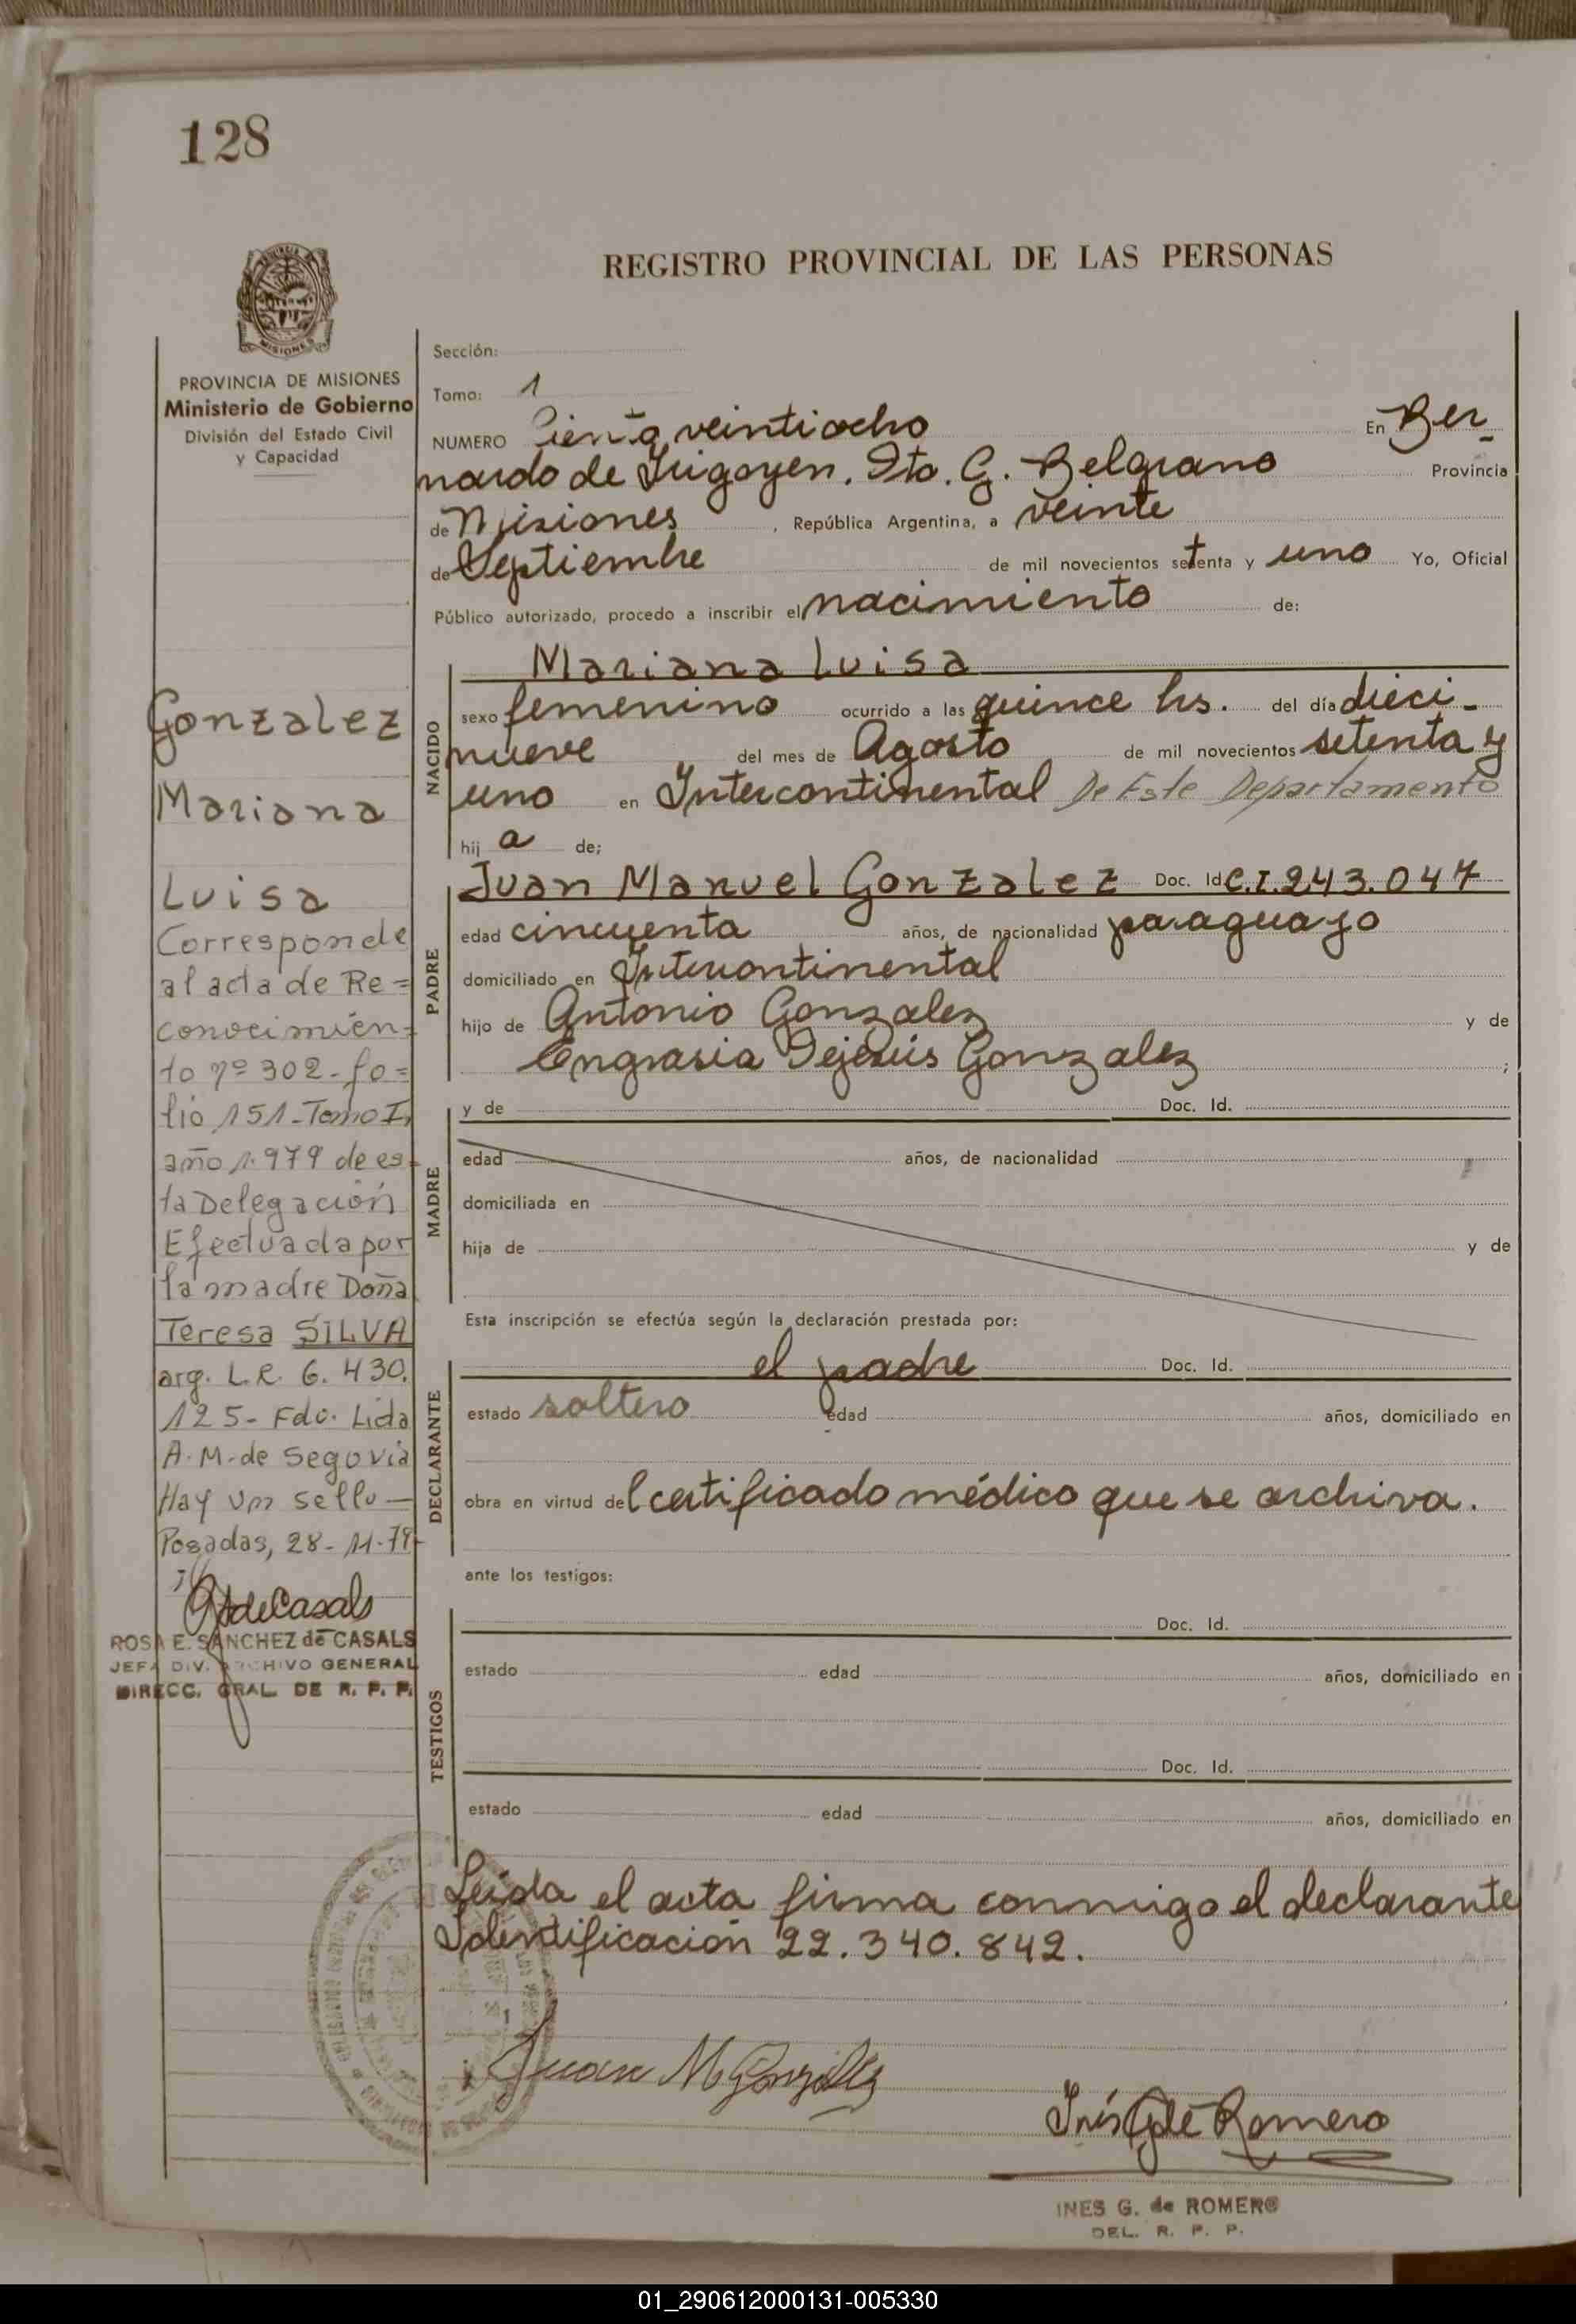 128
REGISTRO PROVINCIAL DE LAS PERSONAS
MISIONES
PROVINCIA DE MISIONES
Ministerio de Gobierno
División del Estado Civil
y Capacidad
Gonzalez
Mariana
Luisa
Corresponde
al acta de Re=
conocimien=
to nº 302 - fo=
lio 151 - Tomo I,
año 1.979 de es-
ta Delegación
Efectuada por
la madre Doña
Teresa SILVA
arg. L.C. 6.430.
125 - Fdo. Lida
A. M. de Segovia
Hay un sello —
Posadas, 28-11-79-
ROSA E. SANCHEZ de CASALS
JEFA DIV. ARCHIVO GENERAL
DIRECC. GRAL. DE R. P. P.
Sección:
Tomo: 1
NUMERO Ciento veintiocho En Ber-
nardo de Irigoyen. Dto. G. Belgrano Provincia
de Misiones, República Argentina, a veinte
de Septiembre de mil novecientos setenta y uno Yo, Oficial
Público autorizado, procedo a inscribir el nacimiento de:
NACIDO
Mariana Luisa
sexo femenino ocurrido a las quince hs. del día dieci-
nueve del mes de Agosto de mil novecientos setenta y
uno en Intercontinental De Este Departamento
hij a de;
PADRE
Juan Manuel Gonzalez Doc. Id C.I. 243.047
edad cincuenta años, de nacionalidad paraguayo
domiciliado en Intercontinental
hijo de Antonio Gonzalez y de
Engrasia Dejesús Gonzalez ;
MADRE
y de Doc. Id.
edad años, de nacionalidad
domiciliada en
hija de y de
Esta inscripción se efectúa según la declaración prestada por:
DECLARANTE
el padre Doc. Id.
estado soltero edad años, domiciliado en
obra en virtud del certificado médico que se archiva.
ante los testigos:
TESTIGOS
Doc. Id.
estado edad años, domiciliado en
Doc. Id.
estado edad años, domiciliado en
Leida el acta firma conmigo el declarante
Identificación 22.340.842.
Juan M Gonzalez
Inés G de Romero
INES G. de ROMERO
DEL. R. P. P.
01_290612000131-005330